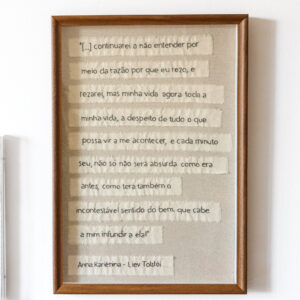 "[...] continuarei a não entender por
meio da razão por que eu rezo, e
rezarei, mas minha vida agora toda a
minha vida, a despeito de tudo o que
possa vir a me acontecer, e cada minuto
seu, não só não será absurda como era
antes, como terá também o
incontestável sentido do bem, que cabe
a mim infundir a ela!"
Anna Kariênina - Liev Tolstói